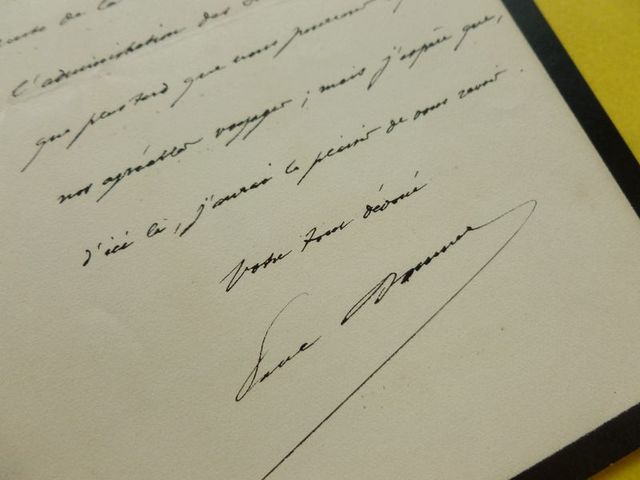 de la
l'administration des
que plus tard que nous pourrons
nos agréables voyages ; mais j'espère que,
d'ici là, j'aurai le plaisir de vous revoir.
Votre tout dévoué
Paul Doumer